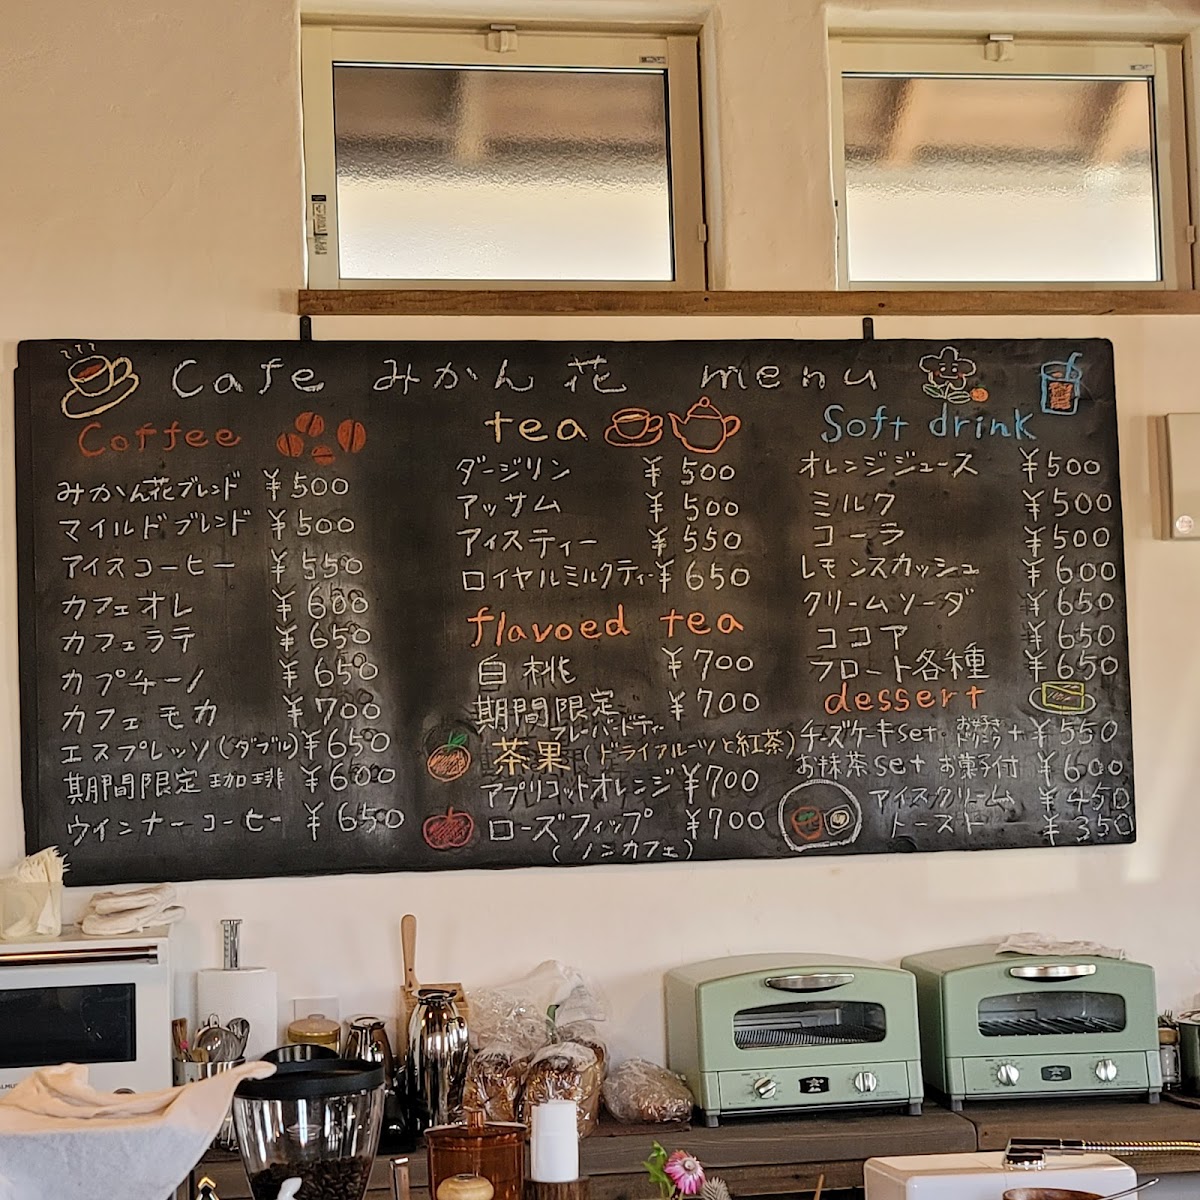 Cafe みかん花 menu
Coffee
みかん花ブレンド ¥500
マイルドブレンド ¥500
アイスコーヒー ¥550
カフェオレ ¥600
カフェラテ ¥650
カプチーノ ¥650
カフェモカ ¥700
エスプレッソ(ダブル) ¥650
期間限定珈琲 ¥600
ウインナーコーヒー ¥650
tea
ダージリン ¥500
アッサム ¥500
アイスティー ¥550
ロイヤルミルクティー ¥650
flavoed tea
白桃 ¥700
期間限定 ¥700
フレーバードティー
茶果 (ドライフルーツと紅茶)
アプリコットオレンジ ¥700
ローズフィップ ¥700
(ノンカフェ)
Soft drink
オレンジジュース ¥500
ミルク ¥500
コーラ ¥500
レモンスカッシュ ¥600
クリームソーダ ¥650
ココア ¥650
フロート各種 ¥650
dessert
チーズケーキset お好きドリンク+ ¥550
お抹茶set お菓子付 ¥600
アイスクリーム ¥450
トースト ¥350